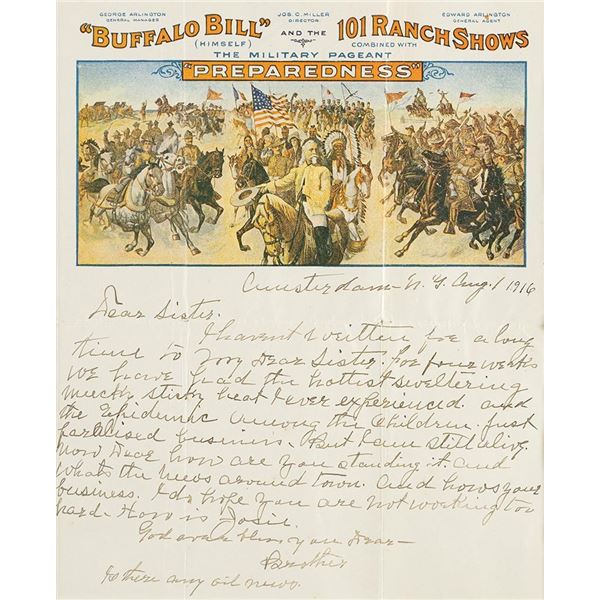 GEORGE ARLINGTON
GENERAL MANAGER
JOS. C. MILLER
DIRECTOR
EDWARD ARLINGTON
GENERAL AGENT
"BUFFALO BILL" AND THE 101 RANCH SHOWS
(HIMSELF) COMBINED WITH
THE MILITARY PAGEANT
"PREPAREDNESS"
Amsterdam - N.Y. Aug 1 1916
Dear Sister.
I havent written for a long
time to you Dear Sister. For four weeks
we have had the hottest sweltering
mucky stinky heat I ever experienced. and
the Epidemic among the Children. Just
paralised business. But I am still alive.
Now Dear how are you standing it. and
whats the news around town. and hows your
business. I do hope you are not working too
hard - How is Josie.
God bless you Dear -
Brother
Is there any oil news.